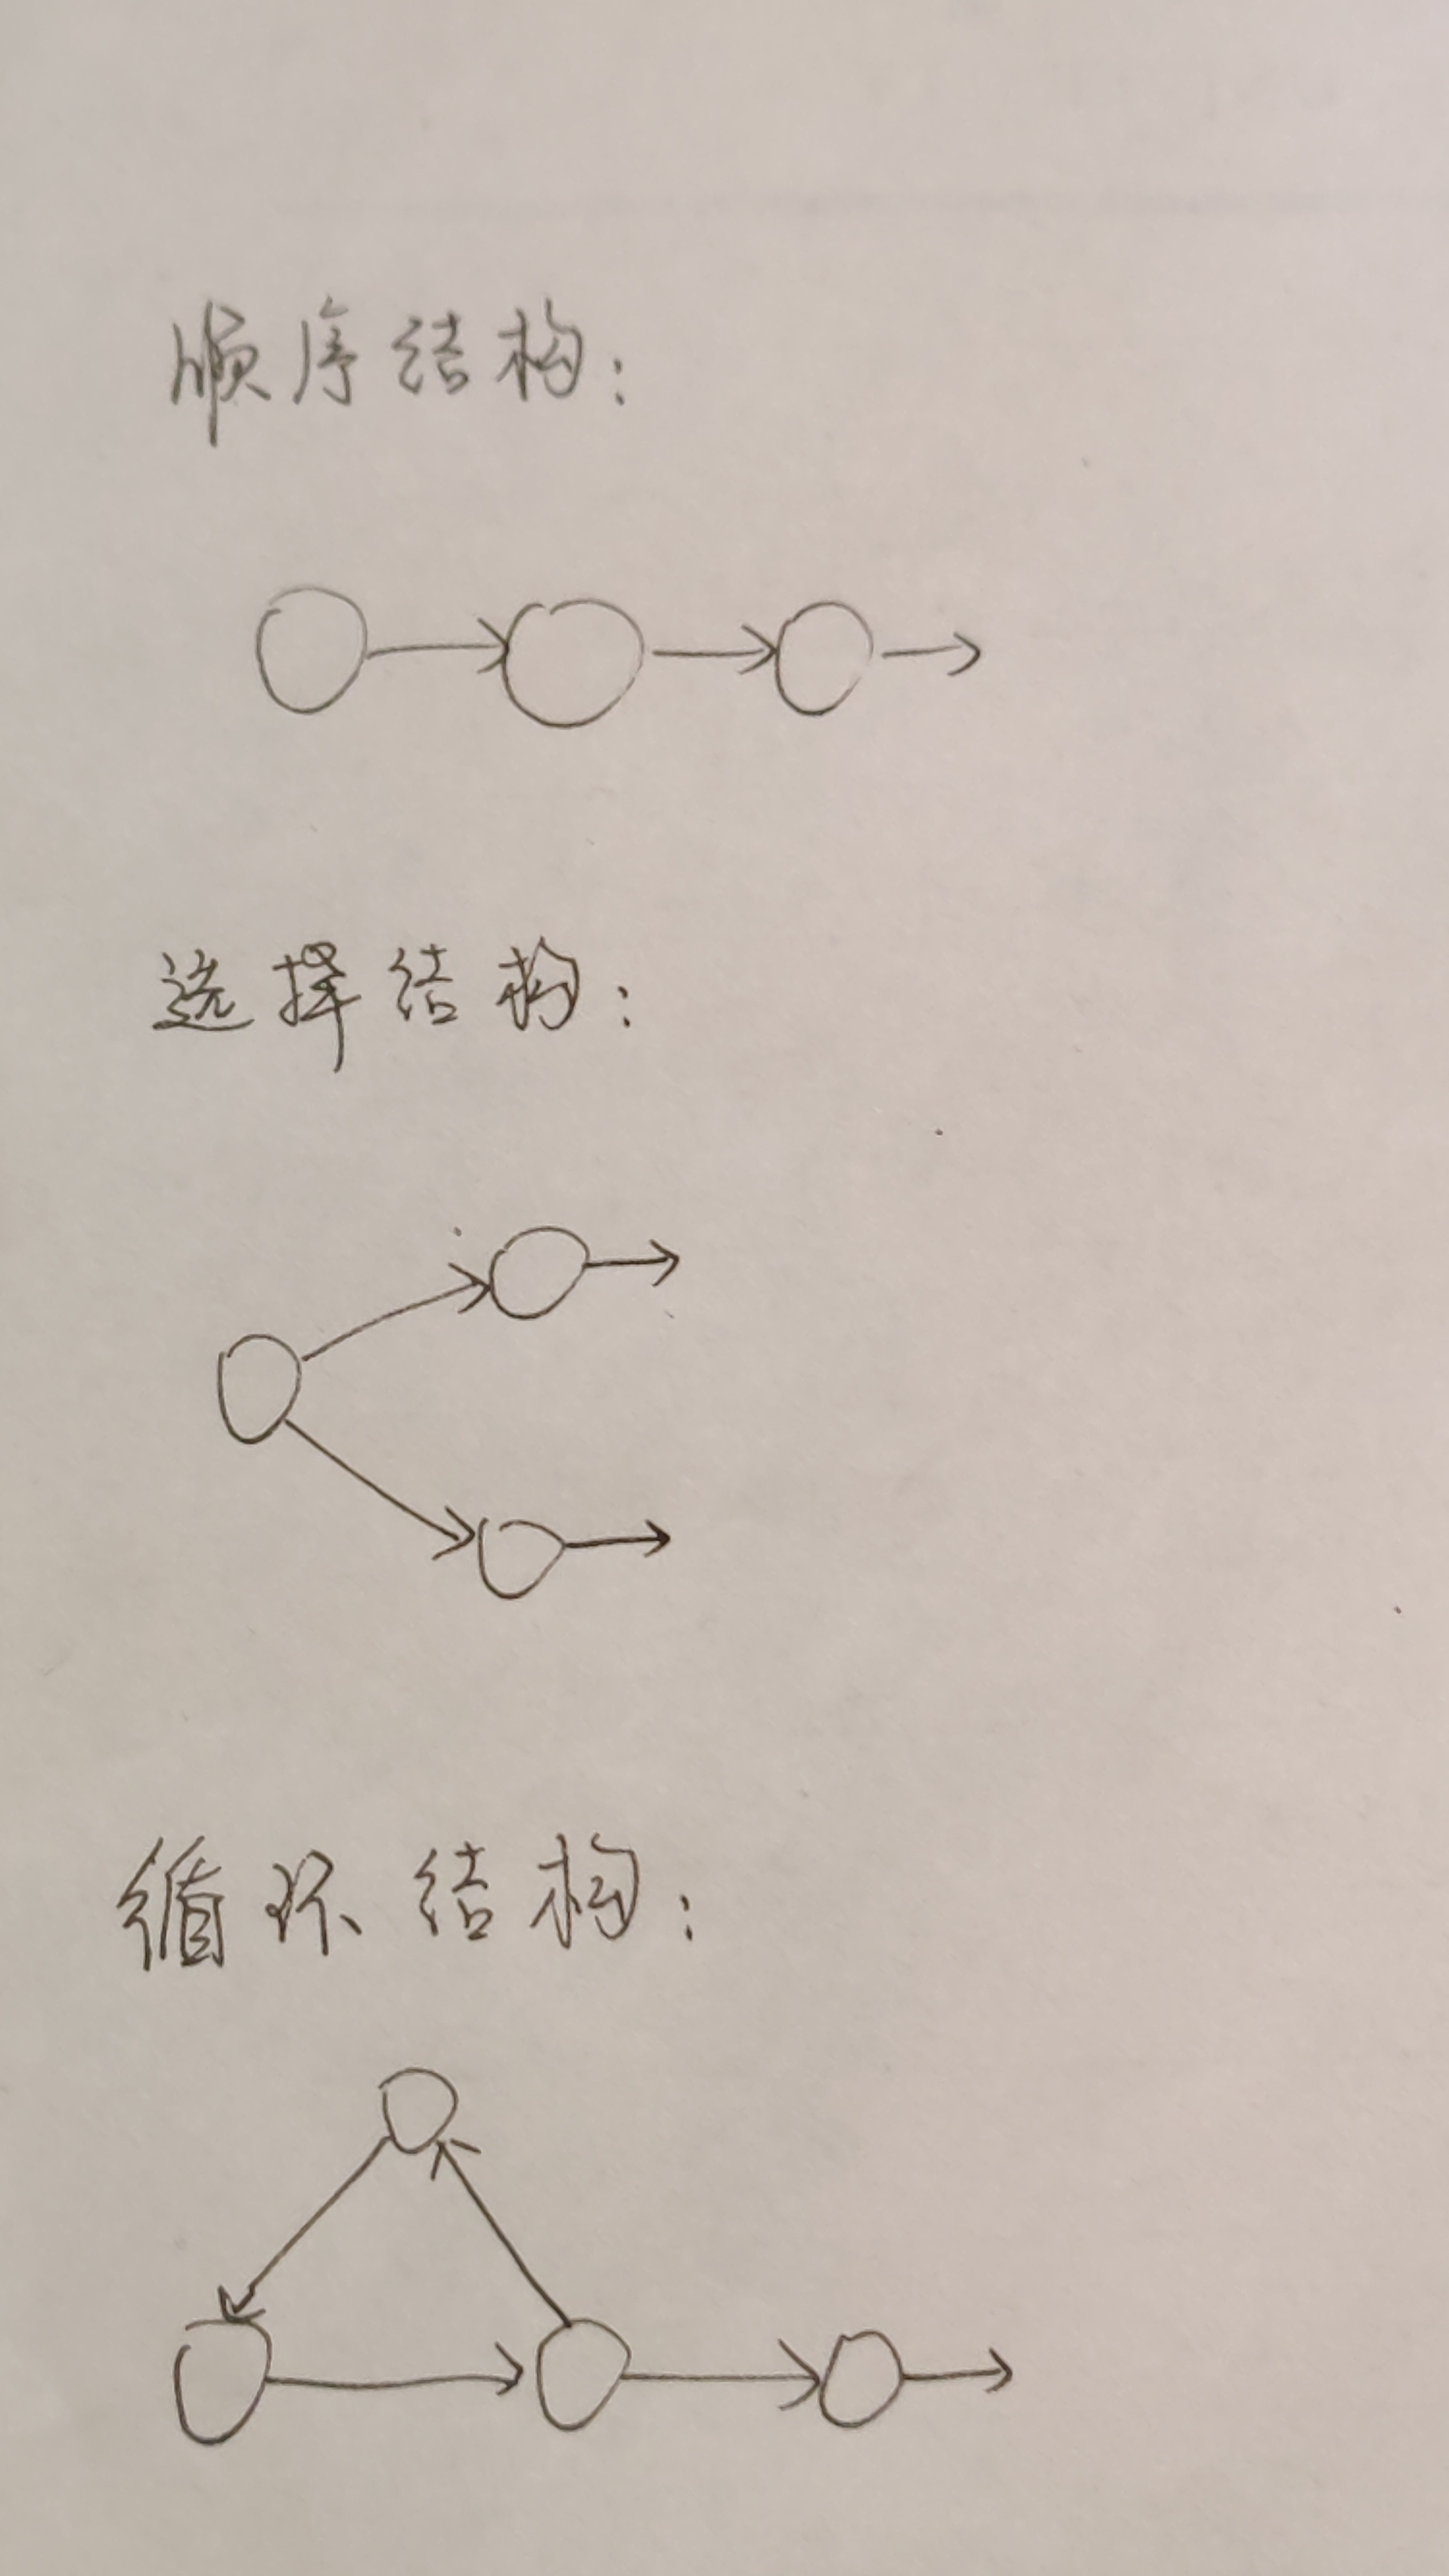 顺序结构：
选择结构：
循环结构：